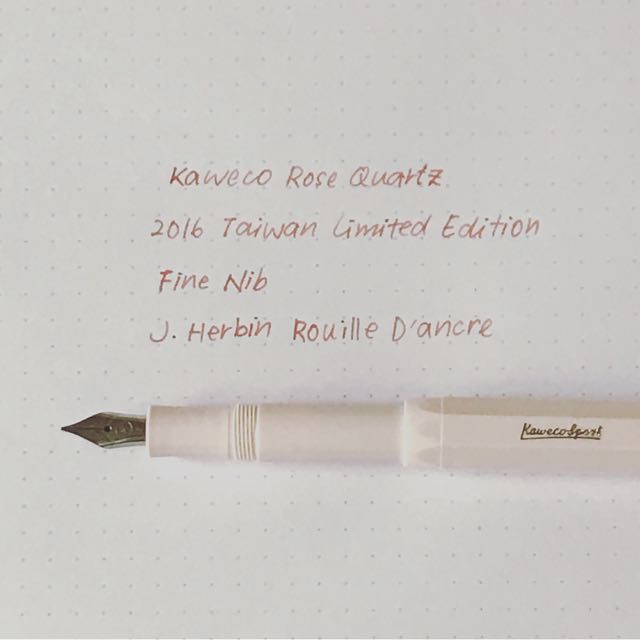 Kaweco Rose Quartz
2016 Taiwan Limited Edition
Fine Nib
J. Herbin Rouille D'ancre
Kaweco Sport